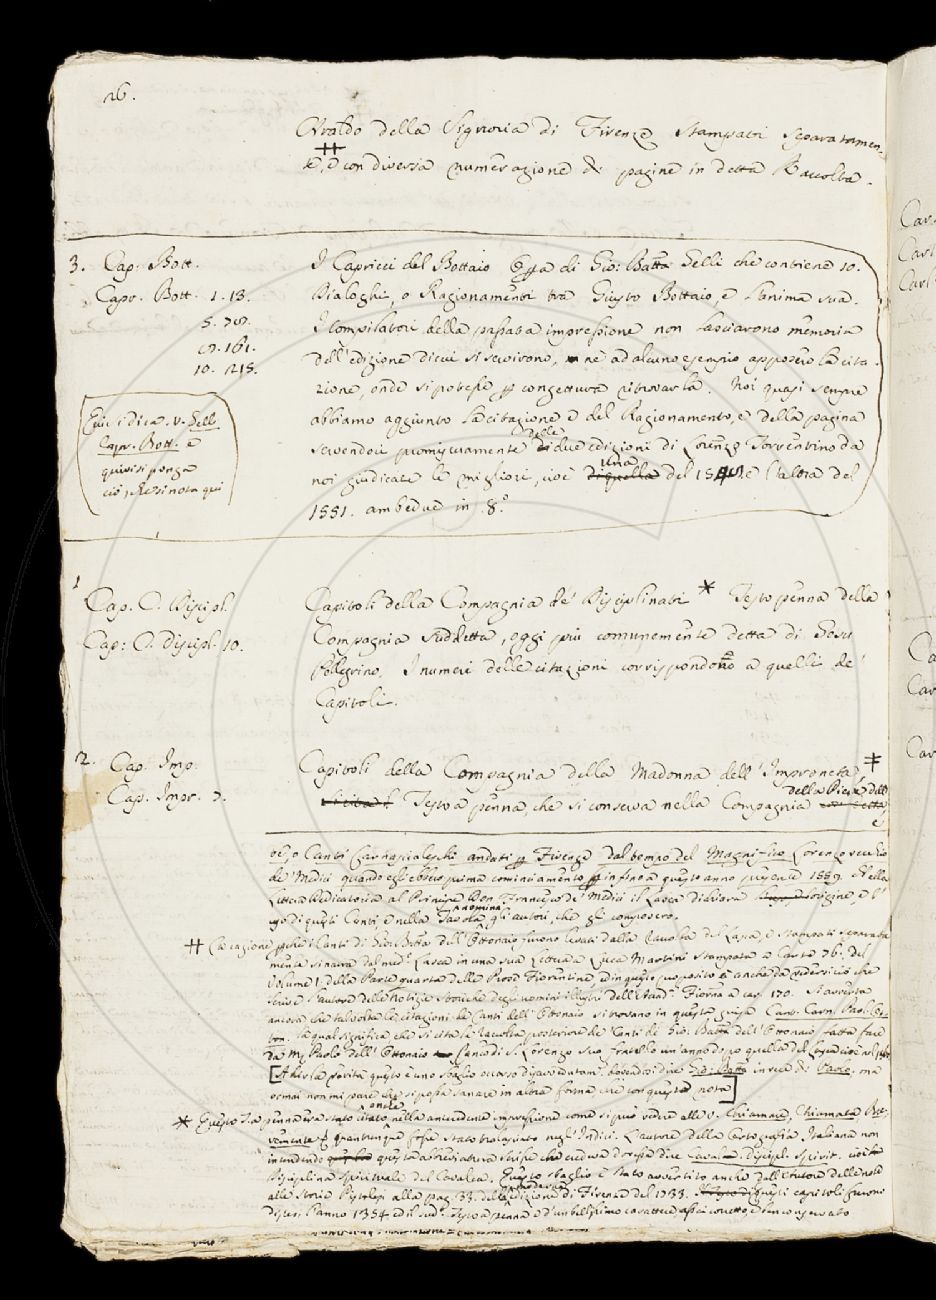 26.
Araldo della Signoria di Firenze stampati separatamen-
te, e con diversa numerazione di pagine in detta Raccolta.
3. Cap. Bott.
Capr. Bott. 1. 13.
5. 78.
9. 161.
10. 215.
Qui si dica. v. Gell.
Capr. Bott. e
quivi si ponga
ciò, che si nota qui
I Capricci del Bottaio Opera di Gio: Batta Gelli che contiene 10.
Dialoghi, o Ragionamenti tra Giusto Bottaio, e l'anima sua.
I Compilatori della passata impressione non lasciarono memoria
dell'edizione di cui si servirono, ne ad alcuno esempio apposero la cita-
zione, onde si potesse per congettura ritrovarla. Noi quasi sempre
abbiamo aggiunto la citazione e del Ragionamento, e della pagina
servendoci promiscuamente delle due edizioni di Lorenzo Torrentino da
noi giudicate le migliori, cioè di quella una del 154 e l'altra del
1551. ambedue in 8.°
1
Cap. C. Discipl.
Cap: C. discipl. 10.
Capitoli della Compagnia de' Disciplinati * Testo penna della
Compagnia suddetta, oggi più comunemente detta di Gesù
Pellegrino. I numeri delle citazioni corrispondono a quelli de'
Capitoli.
2. Cap. Imp.
Cap. Impr. 7.
Capitoli della Compagnia della Madonna dell'Impruneta ⧧
Testo a penna, che si conserva nella Compagnia della Pieve dell'
e'
ze, o Canti Carnascialeschi andati per Firenze dal tempo del Magnifico Lorenzo vecchio
de' Medici quando egli ebbero prima cominciamento per infino a questo anno presente 1559. Nella
Lettera Dedicatoria al Principe Don Francesco de' Medici il Lasca dichiara l'origine, e l'
uso di questi Canti, e nella Tavola nomina gli autori, che gli composero.
⧧ La cagione perche i Canti di Gio: Batta dell'Ottonaio furono levati dalla raccolta del Lasca, e stampati separata-
mente si narra dal med.° Lasca in una sua Lettera a Luca Martini stampata a carte 76. del
Volume I. della Parte quarta delle Prose Fiorentine, ed in questo proposito è anche da vedersi ciò che
scrive l'autore delle Notizie Storiche degli uomini illustri dell'Accad.ª Fiorna a car. 170. Si avverta
ancora che talvolta le citazioni de' Canti dell'Ottonaio si trovano in questa guisa Cant. Carn. Paol. Ot-
ton. la qual significa che si cita la Raccolta posteriore de' Canti di Gio: Batta dell'Ottonaio fatta fare
da M. Paolo dell'Ottonaio Canco di S. Lorenzo suo fratello un'anno dopo quella del
[A dir la verità questo è uno sbaglio occorso disavvedutam. dovendosi dire Gio: Batta in vece di Paolo. ma
ormai non mi pare che si possa sanare in altra forma che con questa nota]
* Questo T. a penna era stato citato anche nella antecedente impressione come si può vedere alle v. Chiamare, Chiamata, Ret-
tamente e quantunque fosse stato tralasciato negl'Indici. L'autore della Cortografia Italiana non
intendendo questa abbreviatura scrisse che credeva dovesse dire Cavalca. discipl. spirit. cioè
Disciplina Spirituale del Cavalca. Questo sbaglio è stato avvertito anche dall'Autore delle note
alle Storie Pistolesi alla pag. 33. della moderna edizione di Firenze del 1733. questi capitoli furono
distesi l'anno 1354. ed il sud.° Testo a penna e d'un bellissimo carattere assai corretto, e ben conservato